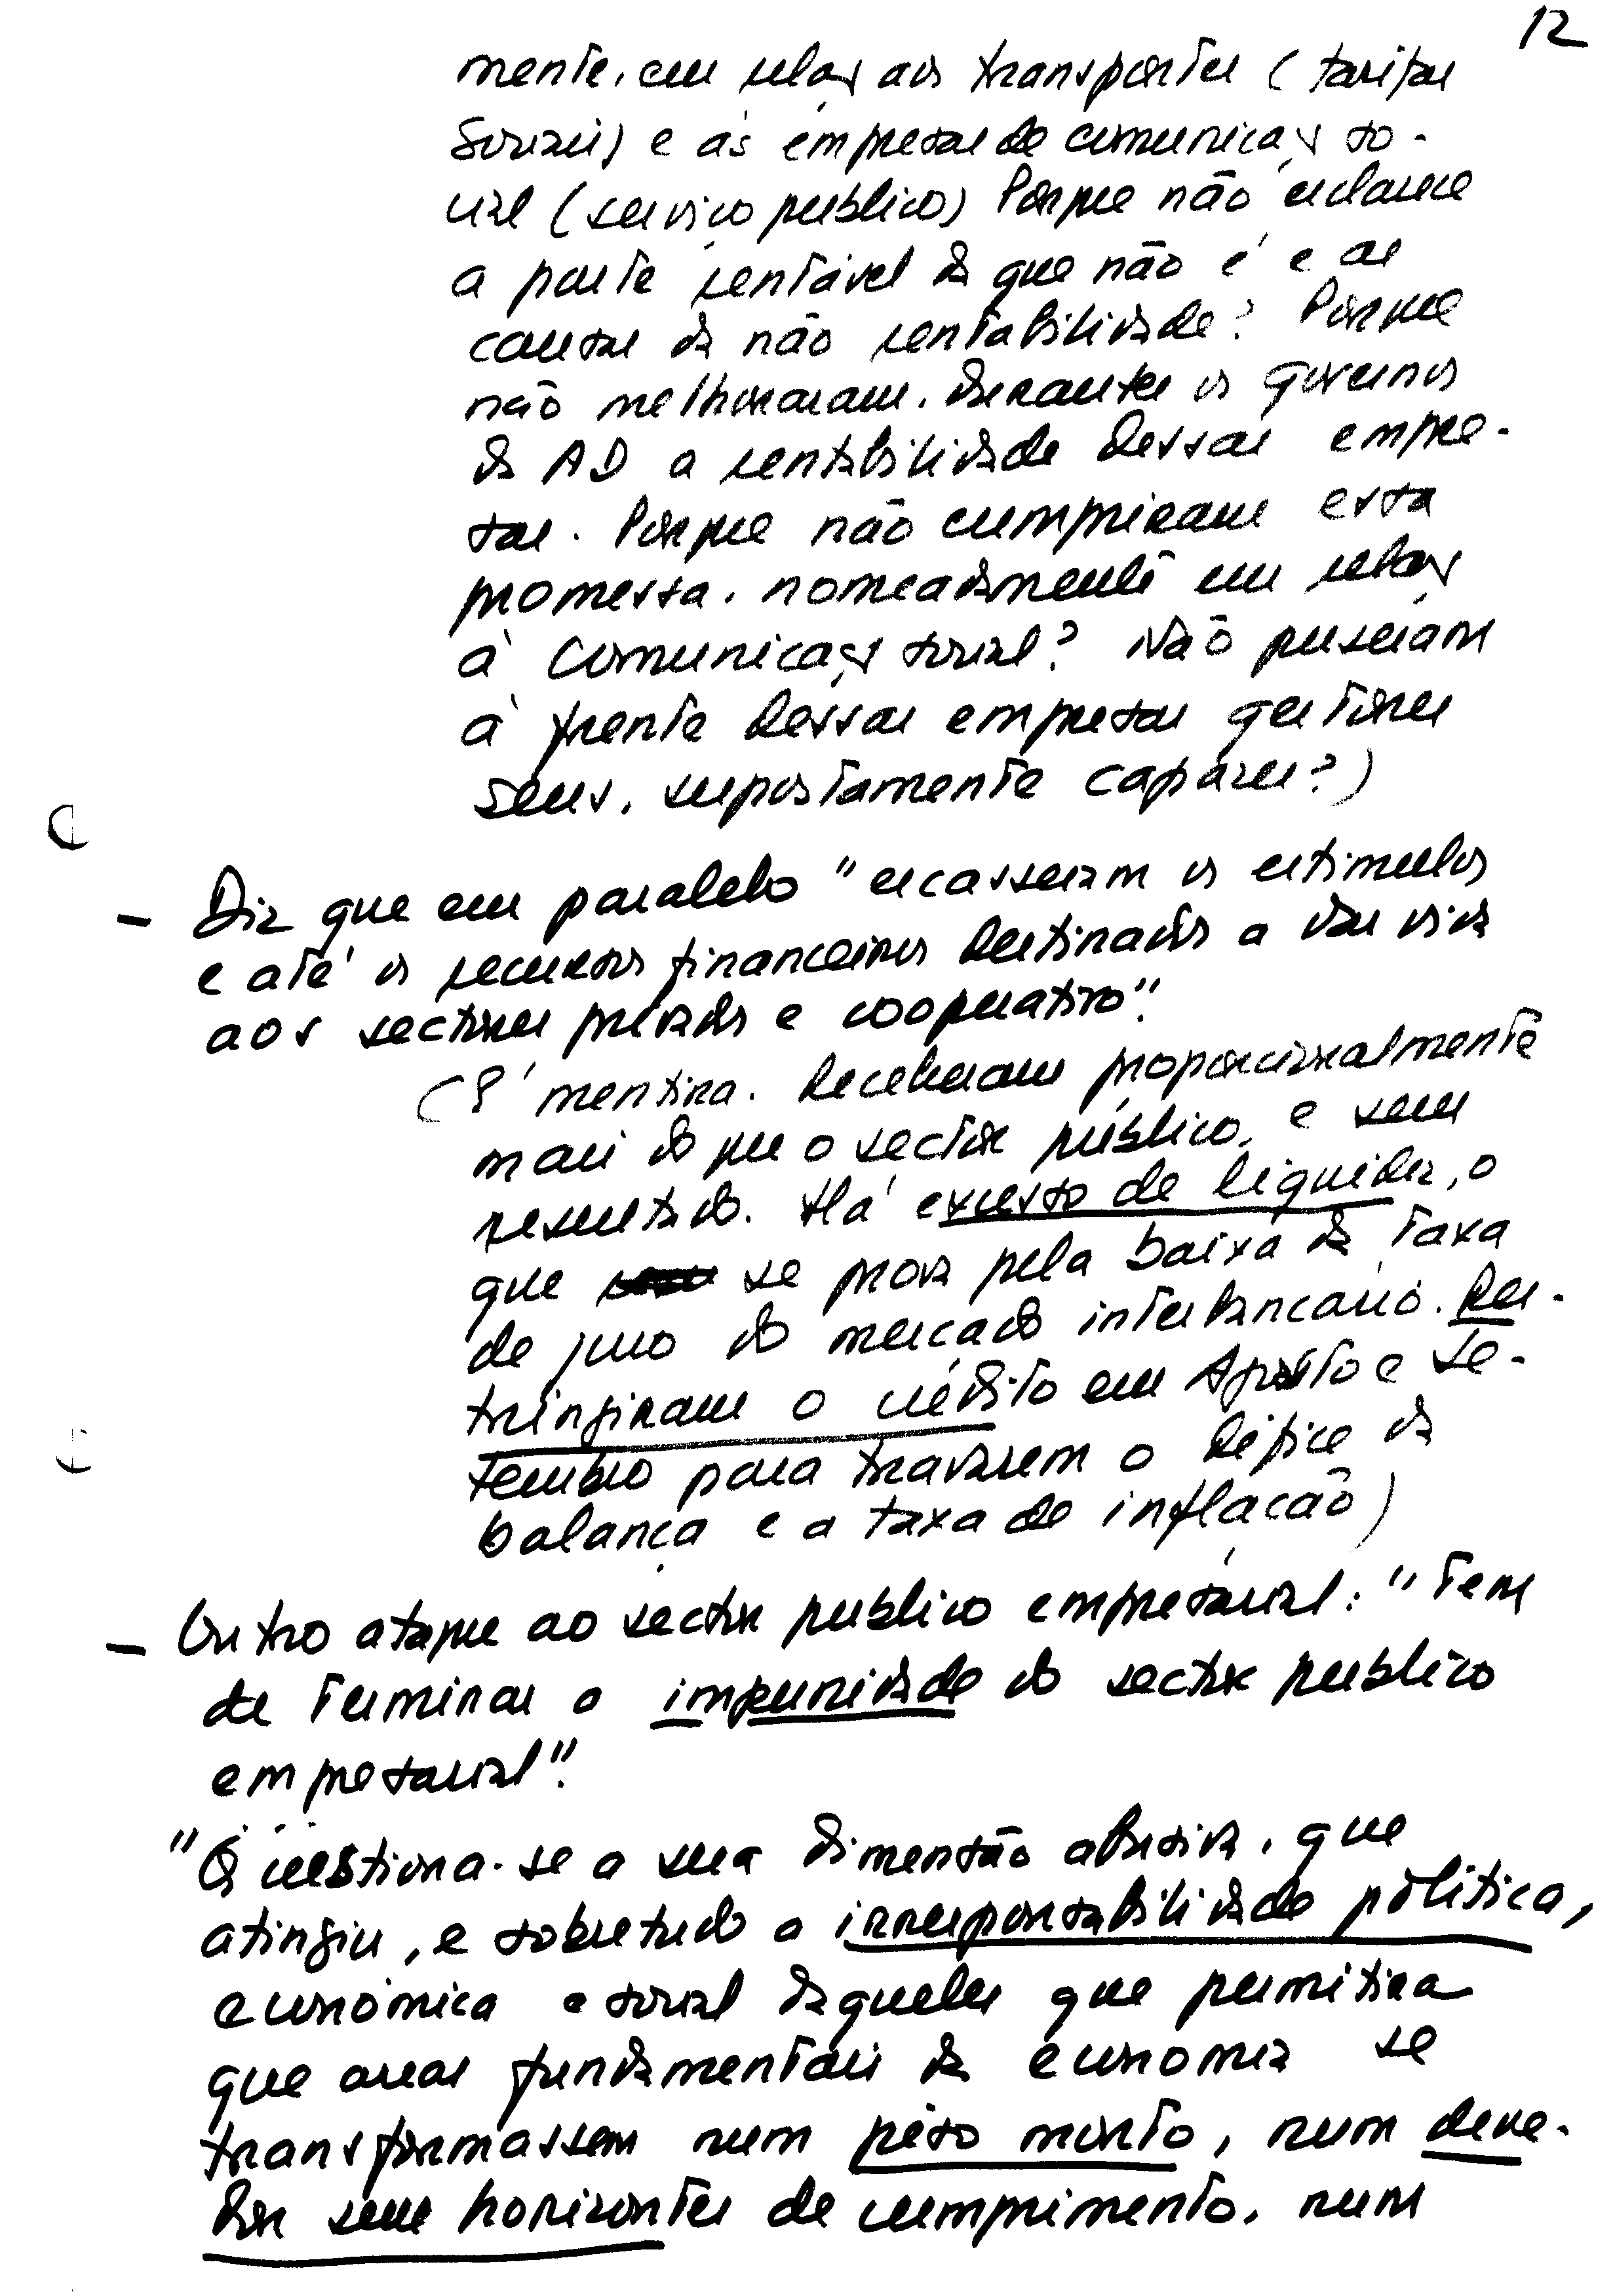 12
mente, em relação aos transportes (tarifas
sociais) e às empresas de comunicação so-
cial (serviço público) Porque não esclarece
a parte rentável da que não é e as
causas da não rentabilidade? Porque
não melhoraram, durante os governos
da AD a rentabilidade dessas empre-
sas. Porque não cumpriram esta
promessa, nomeadamente em relação
à Comunicação social? Não puseram
à frente dessas empresas gestores
seus, supostamente capazes?)
- Diz que em paralelo "escasseiam os estímulos
e até os recursos financeiros destinados a dar vida
aos sectores privados e cooperativo".
(É mentira. Receberam proporcionalmente
mais do que o sector público, e sem
resultado. Há excesso de liquidez, o
que se prova pela baixa da taxa
de juro do mercado interbancário. Res-
tringiram o crédito em Agosto e Se-
tembro para travarem o défice da
balança e a taxa de inflação)
- Outro ataque ao sector público empresarial: "Tem
de terminar a impunidade do sector público
empresarial".
"Questiona-se a sua dimensão abusiva, que
atingiu, e sobretudo a irresponsabilidade política,
económica e social daqueles que permitira
que areas fundamentais da economia se
transformassem num peso morto, num deve-
dor sem horizontes de cumprimento, num